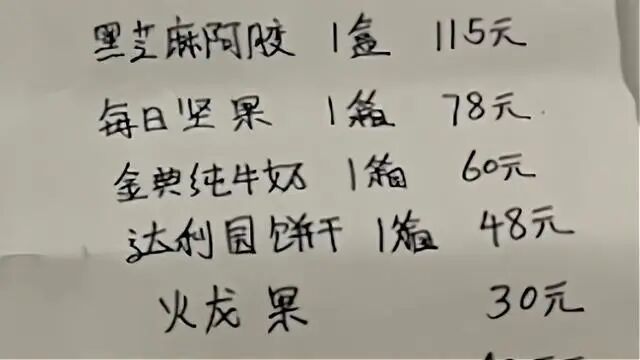 黑芝麻阿胶 1盒 115元
每日坚果 1箱 78元
金典纯牛奶 1箱 60元
达利园饼干 1箱 48元
火龙果 30元